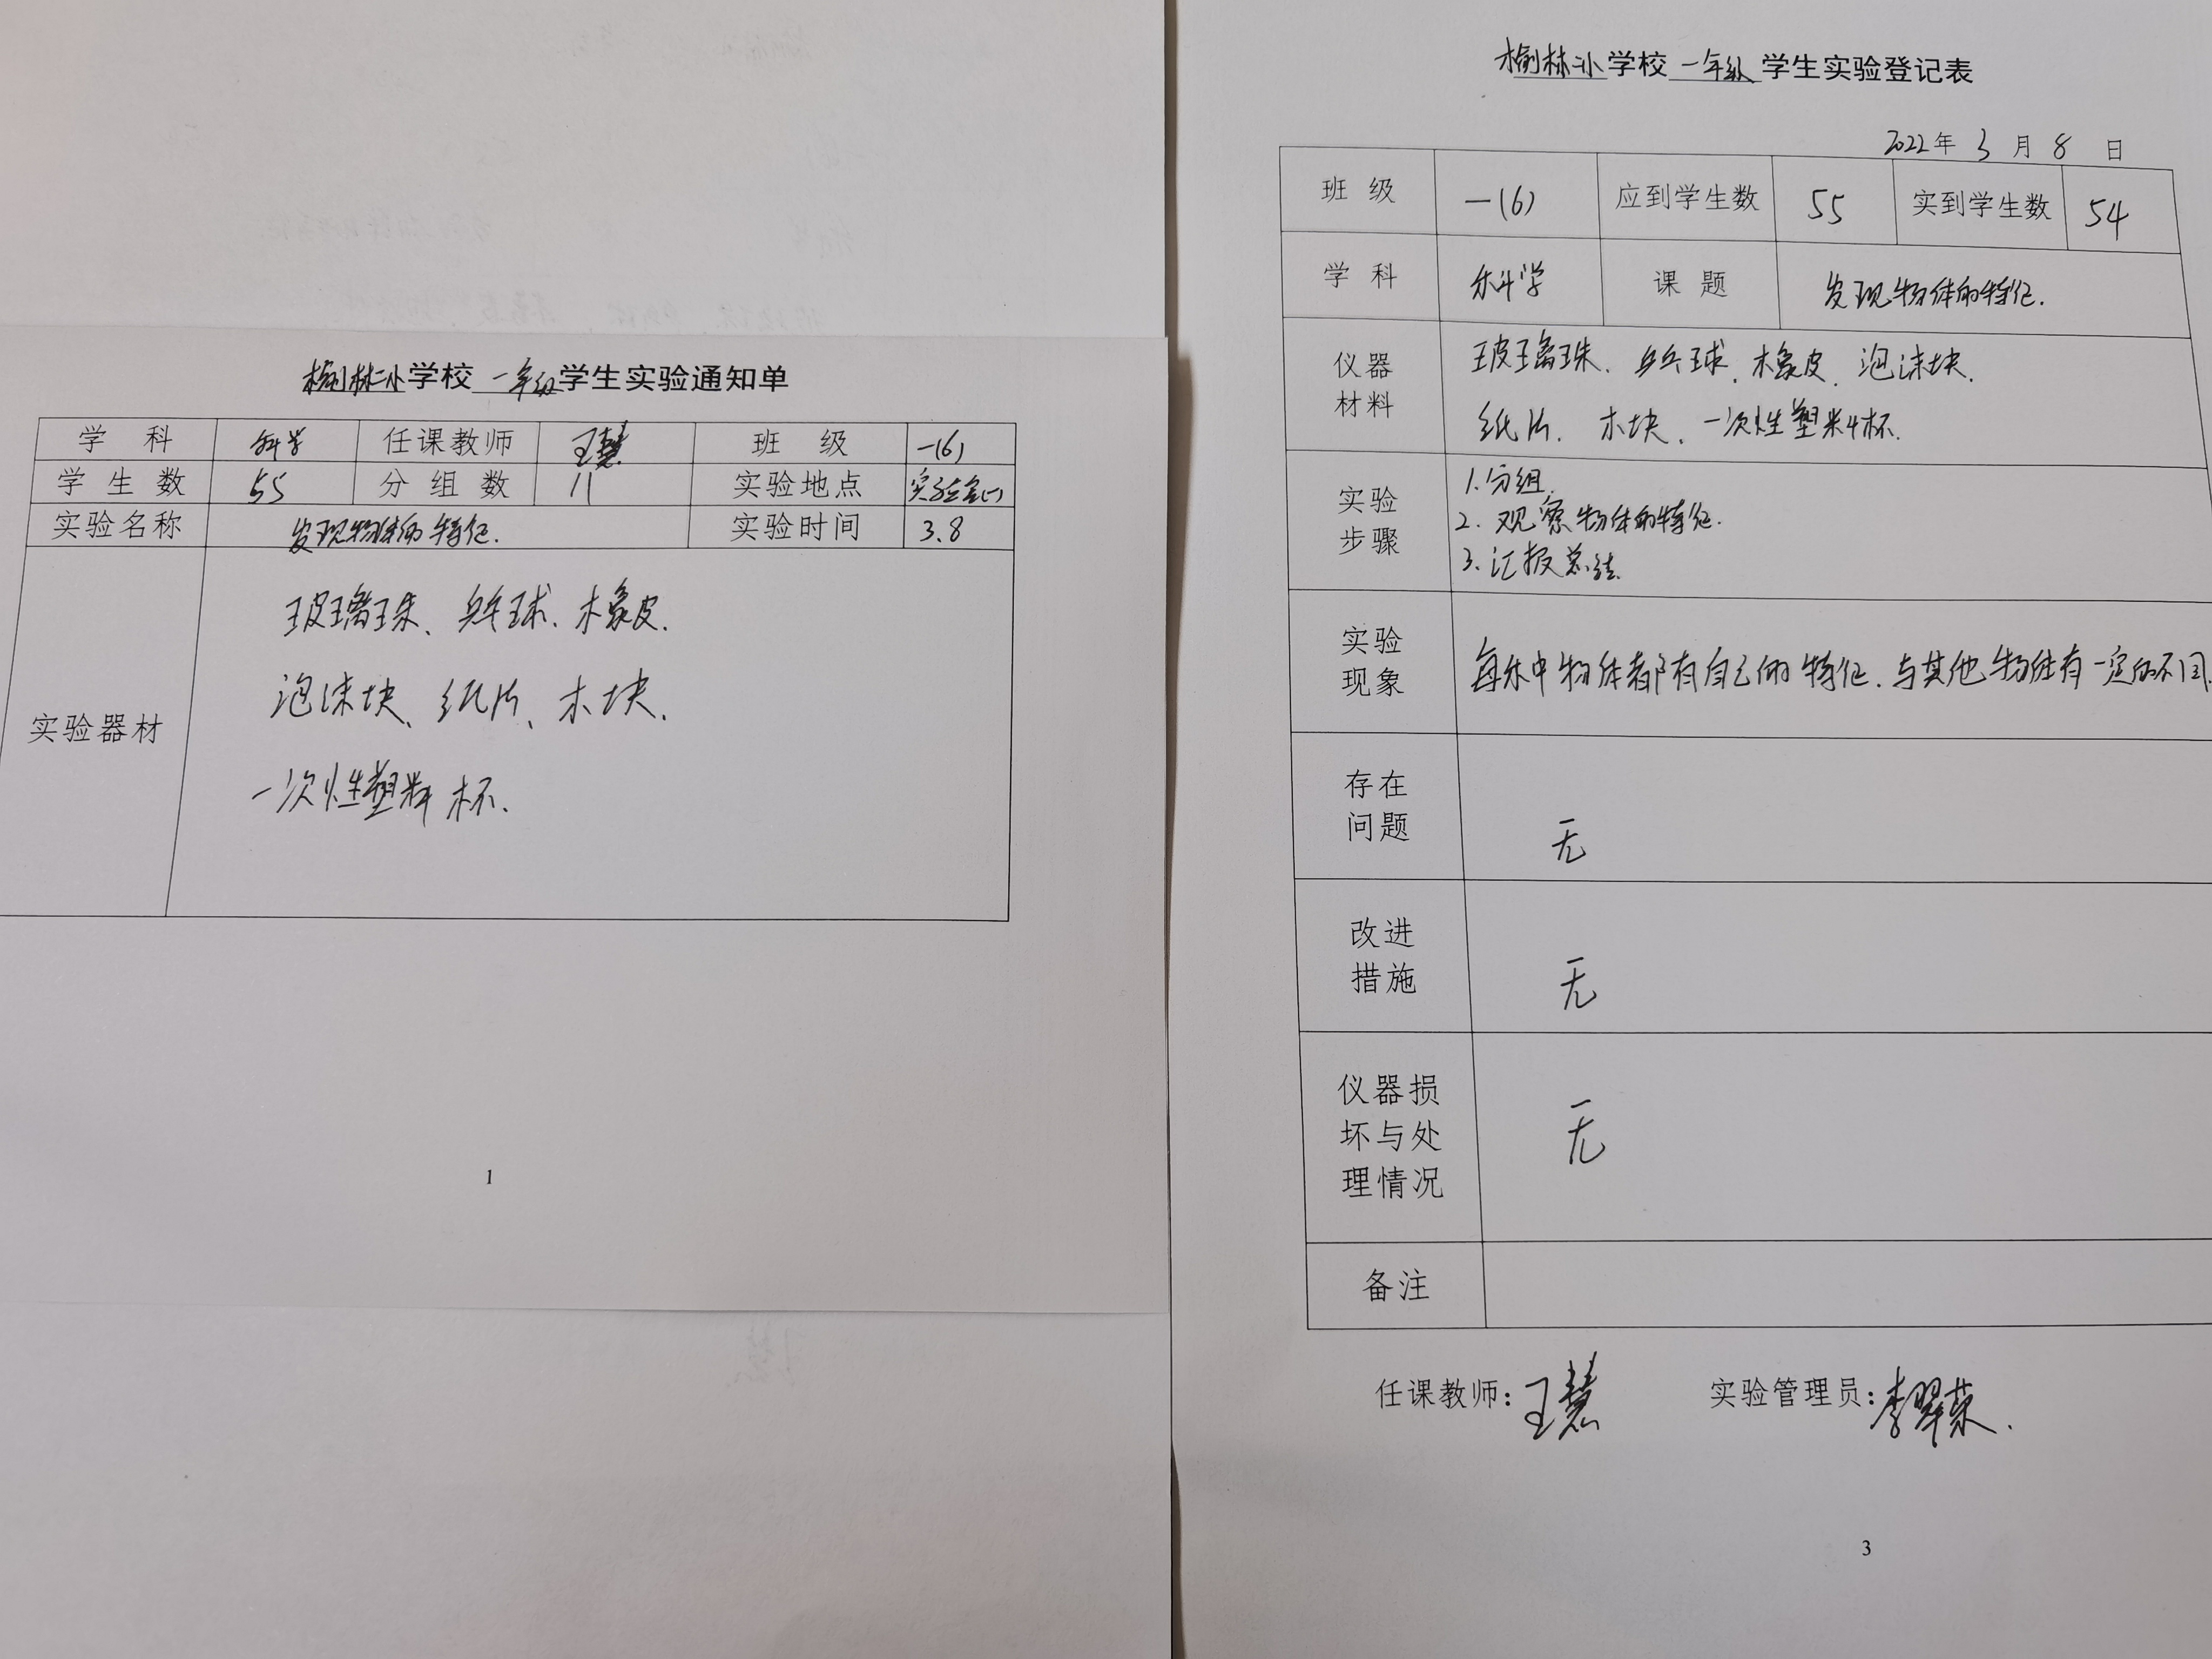 榆林二小学校 一年级 学生实验通知单
学 科 科学 任课教师 王慧 班 级 一(6)
学 生 数 55 分 组 数 11 实验地点 实验室(一)
实验名称 发现物体的特征. 实验时间 3.8
实验器材
玻璃珠、乒乓球、橡皮.
泡沫块、纸片、木块、
一次性塑料杯.
1
榆林二小学校 一年级 学生实验登记表
2022年 3 月 8 日
班 级 一(6) 应到学生数 55 实到学生数 54
学 科 科学 课 题 发现物体的特征.
仪器
材料
玻璃珠、乒乓球、橡皮、泡沫块、
纸片、木块、一次性塑料杯.
实验
步骤
1.分组.
2.观察物体的特征.
3.汇报总结.
实验
现象
每种物体都有自己的特征、与其他物体有一定的不同.
存在
问题
无
改进
措施
无
仪器损
坏与处
理情况
无
备注
任课教师:王慧 实验管理员:李翠荣.
3